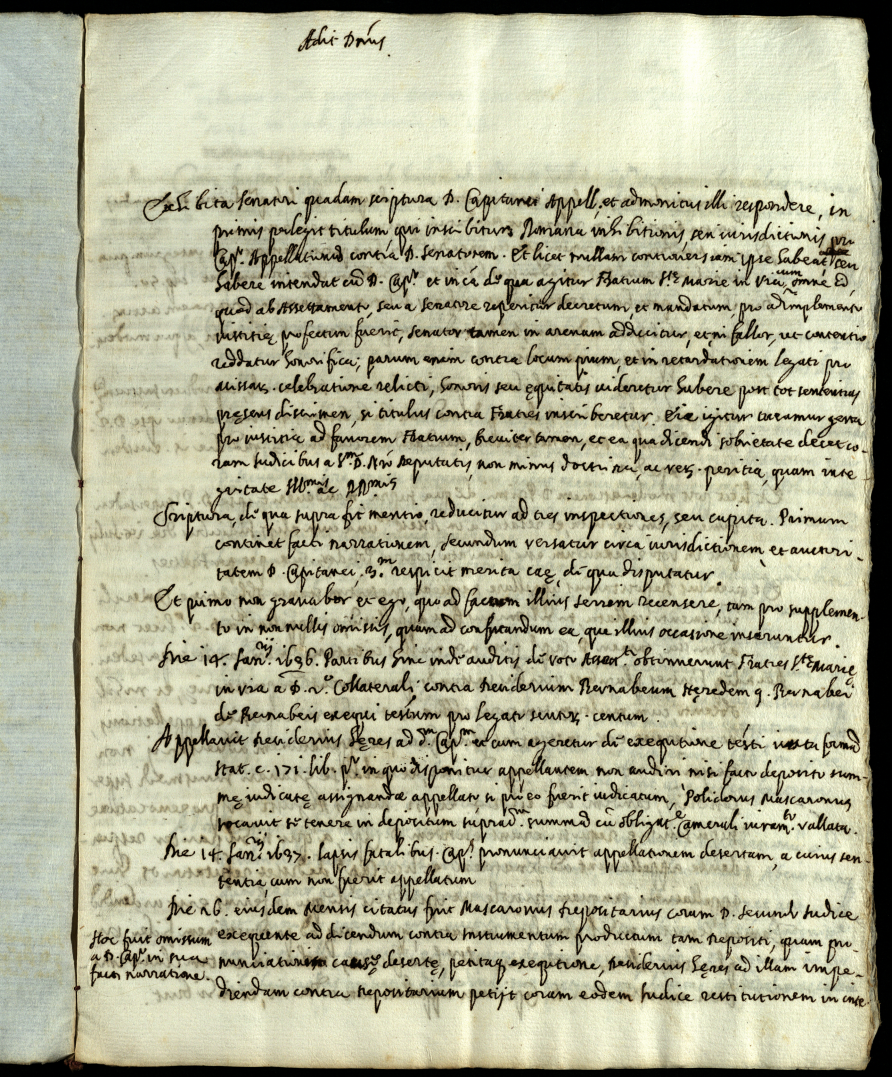 Adit Dnus
Exhibita Senatori quadam scriptura D. Capitanei Appell. et admonitus illi respondere, in
primis perlegit titulum qui inscribitur Romana inhibitionis seu iurisdictionis pro
Capº. Appellationũ contra D. Senatorem. Et licet nullam controversiam ipse habeat, seu
habere intendat cũ D. Capº. et in cã de qua agitur Fratium Stę Marię in Via, cum omne id,
quod ab Assettamento, seu a Senatore reperitur decretum, et mandatum pro adimplemento
iustitię profectum fuerit, Senator tamen in arenam adducitur, et ni fallor, ut contentio
reddatur honorifica; parum enim contra locum pium, et in retardationem legati pro
missar. celebratione relicti, honoris seu ęquitatis videretur habere post tot sententias
pręsens discrimen, si titulus contra Fratres inscriberetur. igitur tueamur gesta
pro iustitia ad favorem Fratrum, breviter tamen, et ea qua dicendi sobrietate decet co-
ram Iudicibus a Smo D. Nro Deputatis, non minus doctrina, ac rer. peritia, quam inte
gritate Illmis ac RRmis
Scriptura, de qua supra fit mentio, reducitur ad tres inspectiones, seu capita. Primum
continet facti narrationem, secundum versatur circa iurisdictionem et auctori-
tatem D. Capitanei, 3.m respicit merita caę, de qua disputatur.
Et primo non gravabor et ego, quo ad factum illius seriem recensere, tam pro supplemen-
to in non nullis omissis, quam ad confutandum ea, quę illius occasione inseruntur.
Die 14. Ianrij 1636. Partibus hinc inde auditis de voto Assectti obtinuerunt Fratres Stę Marię
in via a D. po Collaterali contra Desiderium Bernabeum hęredem q. Bernabei
de Bernabeis exequi testum pro legato scutor. centum.
Appellavit Desiderius hęres ad Dm Capm et cum ageretur de exequutione testi iuxta formã
stat. c. 171. lib. po in quo disponitur appellantem non audiri nisi facto deposito sum-
mę iudicatę assignandę appellato si pro eo fuerit iudicatum, Polidorus Mascaronus
vocavit se tenere in depositum supradm summã cũ obligate Camerali iuramto vallata.
Die 14. Ianrij 1637. lapsis fatalibus Caps pronunciavit appellationem desertam, a cuius sen-
tentia, cum non fuerit appellatum
Die 26. eiusdem Mensis citatus fuit Mascaronus Depositarius coram D. Secundo Iudice
exequente ad dicendum contra Instrumentum productum tam Depositi, quam pro-
nunciationem causę desertę, petitaq exequutione, Desiderius hęres ad illam impe-
diendam contra Depositarium petijt coram eodem Iudice restitutionem in inte-
Hoc fuit omissum
a D. Capo in sua
facti narratione.